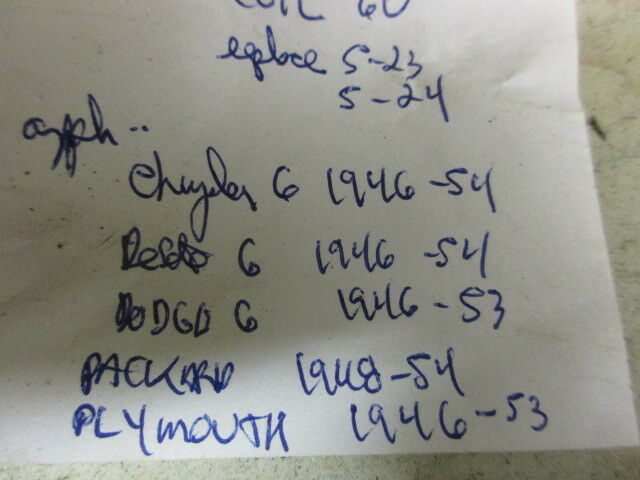 COIL 60
replace 5-23
5-24
Chrysler 6 1946-54
Desoto 6 1946-54
DODGE 6 1946-53
PACKARD 1948-54
PLYMOUTH 1946-53